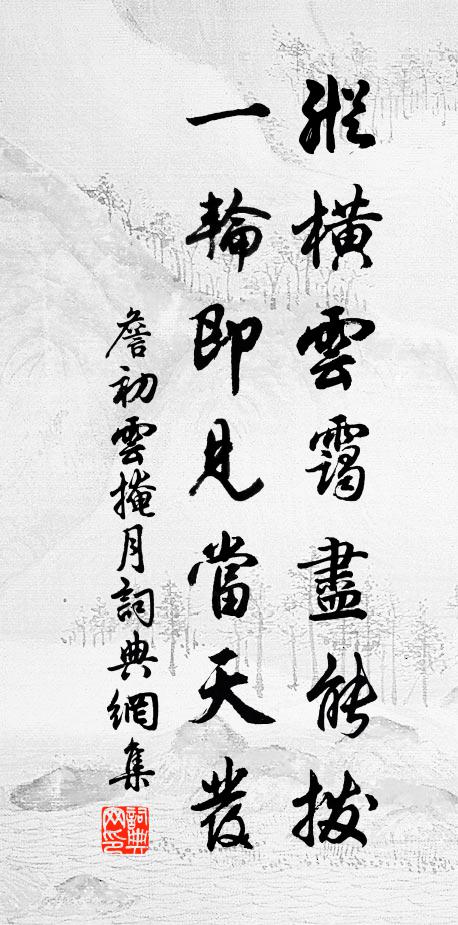 縱橫雲靄盡能撥
一輪即見當天發
詹初雲掩月詞典網集
詞典网印